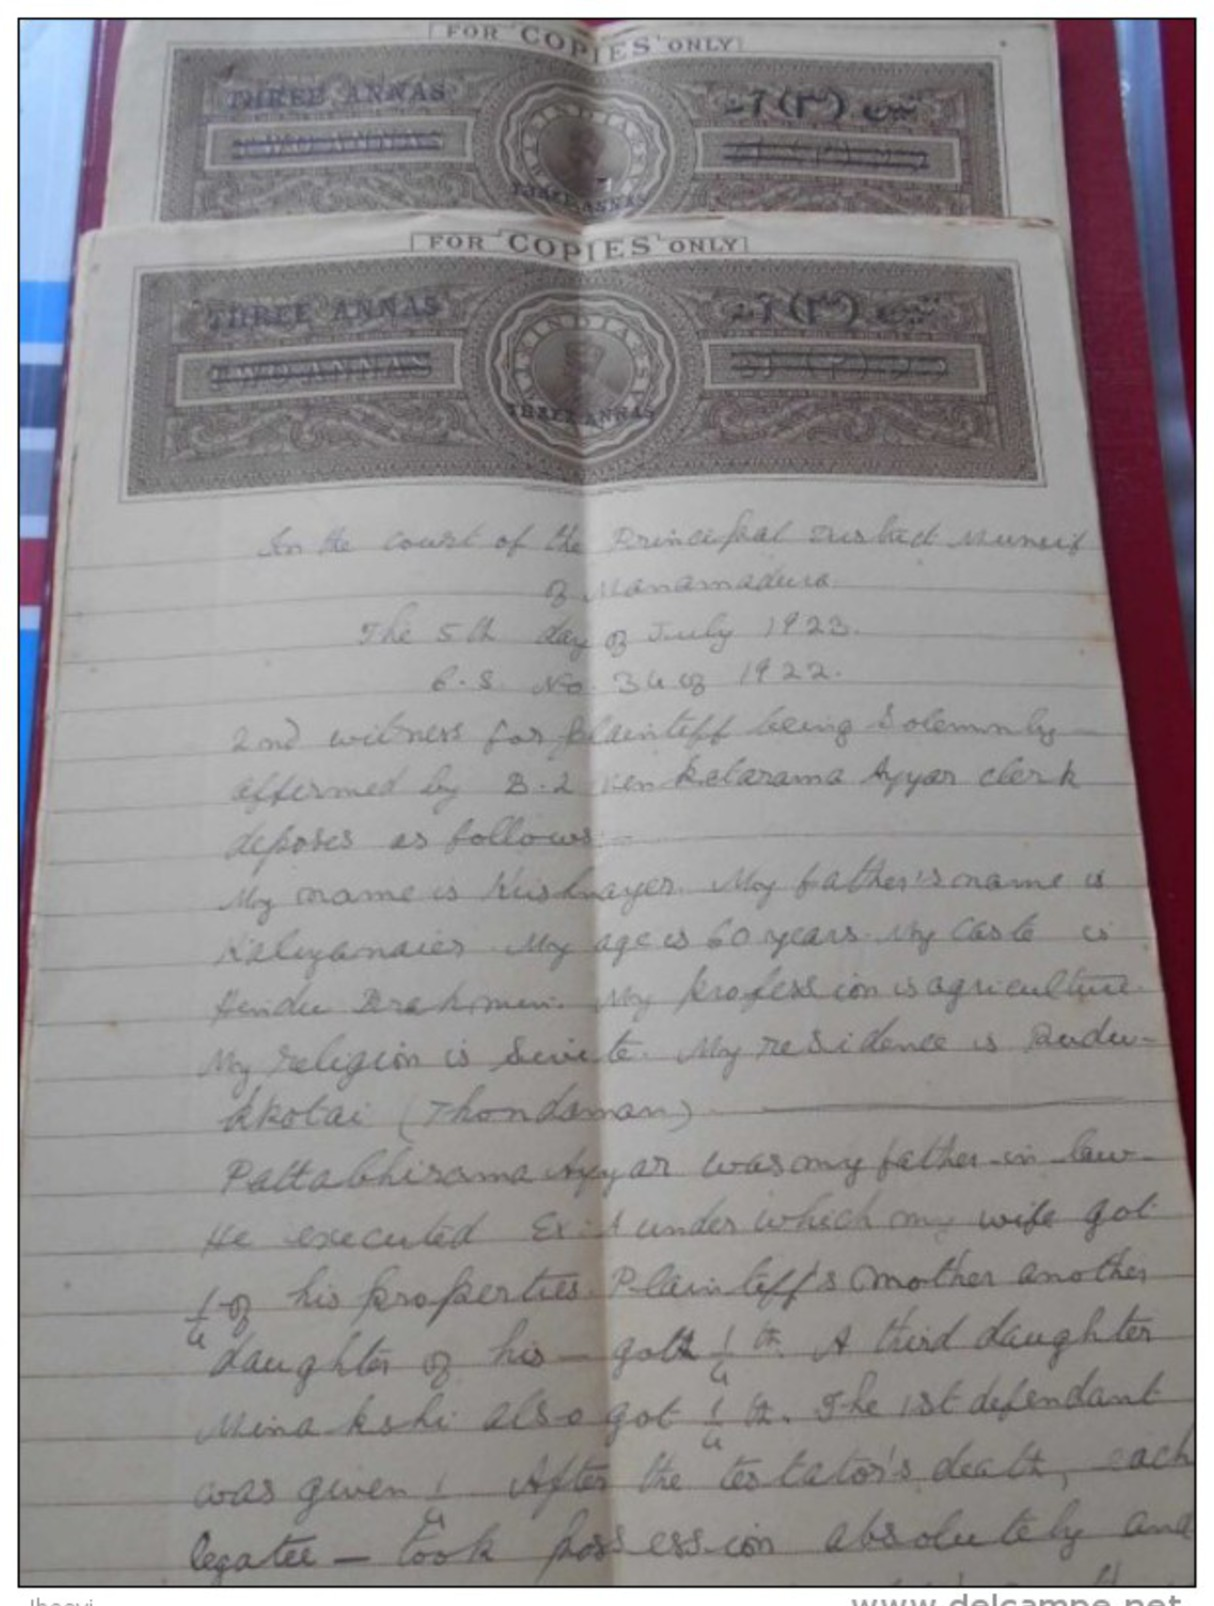 FOR COPIES ONLY
THREE ANNAS
INDIA
THREE ANNAS
FOR COPIES ONLY
THREE ANNAS
TWO ANNAS
INDIA
THREE ANNAS
In the court of the Principal District Munsif
of Manamadura
The 5th day of July 1923.
O.S. No. 34 of 1922.
2nd witness for plaintiff being solemnly
affirmed by B.2 Venkatarama Ayyar clerk
deposes as follows:-
My name is Krishnayer. My father's name is
Kaliyanaier. My age is 60 years. My Caste is
Hindu Brahmin. My profession is agriculture.
My religion is Sivite. My residence is Pudu-
kkotai (Thondaman)
Pattabhirama Ayyar was my father-in-law
He executed Ex: A under which my wife got
1/4 of his properties. Plaintiff's mother another
daughter of his - gott 1/4 th. A third daughter
Minakshi also got 1/4 th. The 1st defendant
was given 1/4 After the testator's death, each
legatee - took possession absolutely and
www.delcampe.net